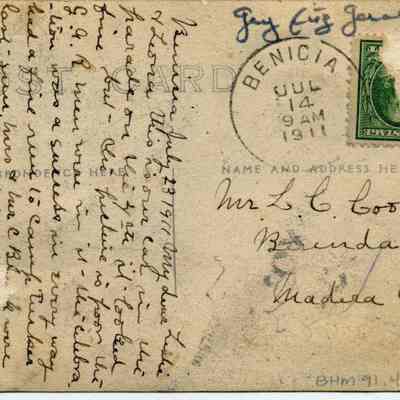 Gay Eng
POST CARD
BENICIA
JUL
14
9 AM
1911
CORRESPONDENCE HERE
NAME AND ADDRESS HE
Benicia July 13 1911 My dear Leslie
& Leora This is our car in the
parade on the 4th it looked
fine but the picture is poor the
G.A.R. men were in it - the celebra
tion was a success in every way
had a fine run to Camp
last
were
Mr L. C. Coo
Brenda
Madera
BHM 91.4